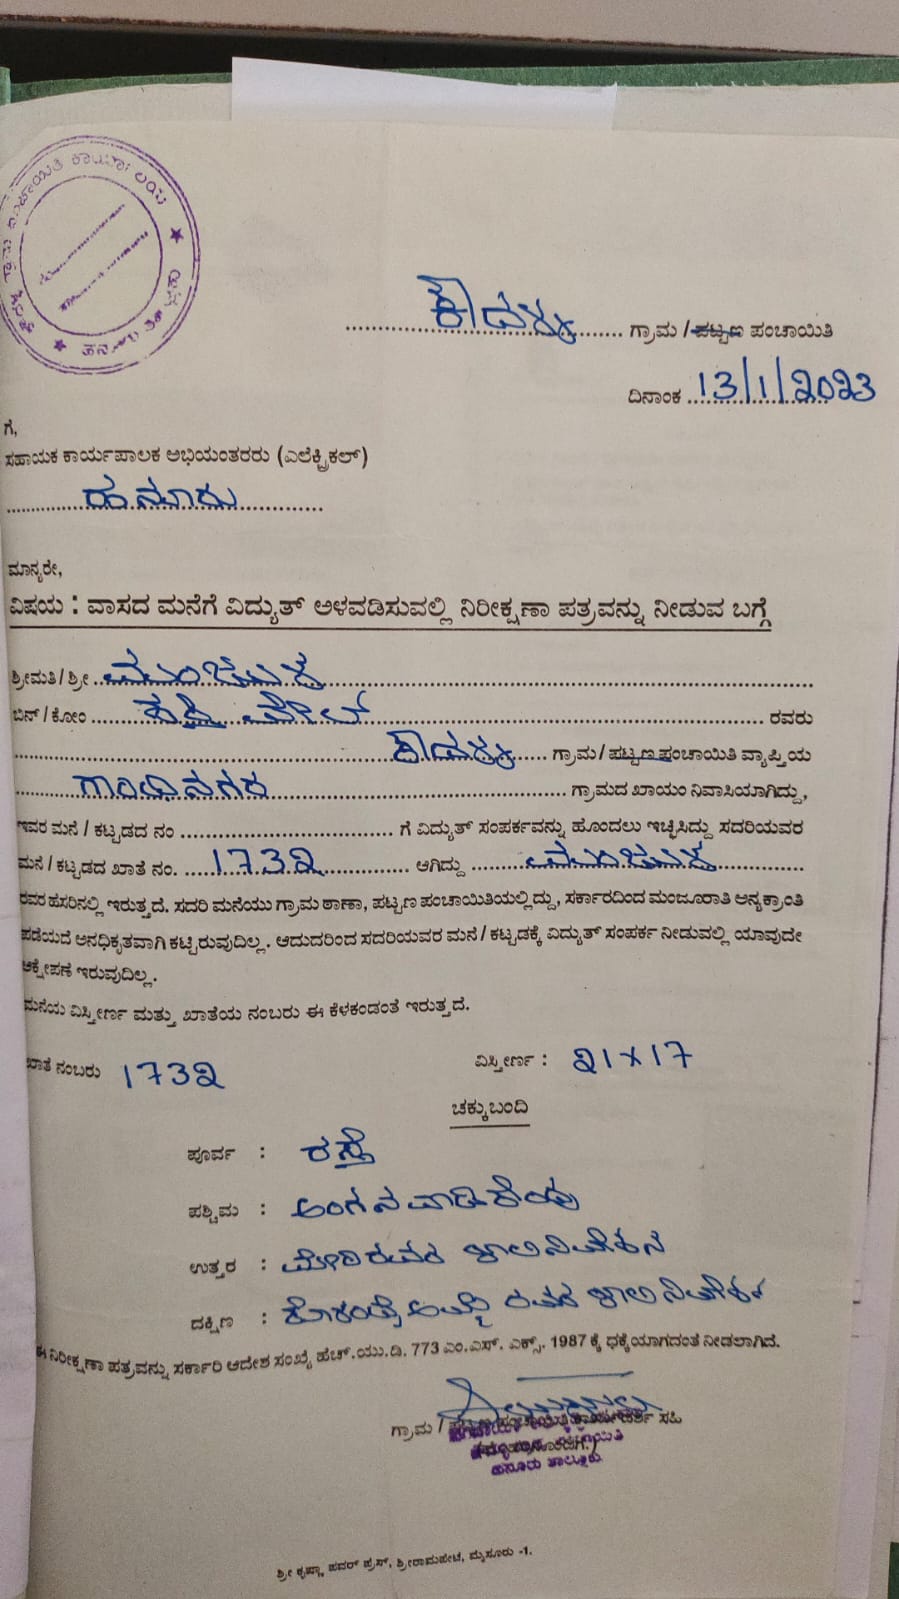 ಗ್ರಾಮ ಪಂಚಾಯಿತಿ ಕಾರ್ಯಾಲಯ
ಕೌದಳ್ಳಿ ಗ್ರಾಮ / ಪಟ್ಟಣ ಪಂಚಾಯಿತಿ
ದಿನಾಂಕ 13/1/2023
ಗೆ,
ಸಹಾಯಕ ಕಾರ್ಯಪಾಲಕ ಅಭಿಯಂತರರು (ಎಲೆಕ್ಟ್ರಿಕಲ್)
ಹನೂರು
ಮಾನ್ಯರೇ,
ವಿಷಯ : ವಾಸದ ಮನೆಗೆ ವಿದ್ಯುತ್ ಅಳವಡಿಸುವಲ್ಲಿ ನಿರೀಕ್ಷಣಾ ಪತ್ರವನ್ನು ನೀಡುವ ಬಗ್ಗೆ
ಶ್ರೀಮತಿ / ಶ್ರೀ
ಬಿನ್ / ಕೋಂ ರವರು
ಕೌದಳ್ಳಿ ಗ್ರಾಮ / ಪಟ್ಟಣ ಪಂಚಾಯಿತಿ ವ್ಯಾಪ್ತಿಯ
ಗಾಂಧಿನಗರ ಗ್ರಾಮದ ಖಾಯಂ ನಿವಾಸಿಯಾಗಿದ್ದು,
ಇವರ ಮನೆ / ಕಟ್ಟಡದ ನಂ ಗೆ ವಿದ್ಯುತ್ ಸಂಪರ್ಕವನ್ನು ಹೊಂದಲು ಇಚ್ಛಿಸಿದ್ದು ಸದರಿಯವರ
ಮನೆ / ಕಟ್ಟಡದ ಖಾತೆ ನಂ. 1732 ಆಗಿದ್ದು
ರವರ ಹೆಸರಿನಲ್ಲಿ ಇರುತ್ತದೆ. ಸದರಿ ಮನೆಯು ಗ್ರಾಮ ಠಾಣಾ, ಪಟ್ಟಣ ಪಂಚಾಯಿತಿಯಲ್ಲಿದ್ದು, ಸರ್ಕಾರದಿಂದ ಮಂಜೂರಾತಿ ಅನ್ಯಕ್ರಾಂತಿ
ಪಡೆಯದೆ ಅನಧಿಕೃತವಾಗಿ ಕಟ್ಟಿರುವುದಿಲ್ಲ. ಆದುದರಿಂದ ಸದರಿಯವರ ಮನೆ / ಕಟ್ಟಡಕ್ಕೆ ವಿದ್ಯುತ್ ಸಂಪರ್ಕ ನೀಡುವಲ್ಲಿ ಯಾವುದೇ
ಆಕ್ಷೇಪಣೆ ಇರುವುದಿಲ್ಲ.
ಮನೆಯ ವಿಸ್ತೀರ್ಣ ಮತ್ತು ಖಾತೆಯ ನಂಬರು ಈ ಕೆಳಕಂಡಂತೆ ಇರುತ್ತದೆ.
ಖಾತೆ ನಂಬರು 1732 ವಿಸ್ತೀರ್ಣ : 21 x 17
ಚಕ್ಕುಬಂದಿ
ಪೂರ್ವ : ರಸ್ತೆ
ಪಶ್ಚಿಮ : ಅಂಗನವಾಡಿ ಕೇಂದ್ರ
ಉತ್ತರ : ಖಾಲಿ ನಿವೇಶನ
ದಕ್ಷಿಣ : ರವರ ಖಾಲಿ ನಿವೇಶನ
ಈ ನಿರೀಕ್ಷಣಾ ಪತ್ರವನ್ನು ಸರ್ಕಾರಿ ಆದೇಶ ಸಂಖ್ಯೆ ಹೆಚ್.ಯು.ಡಿ. 773 ಎಂ.ಎಸ್. ಎಕ್ಸ್. 1987 ಕ್ಕೆ ಧಕ್ಕೆಯಾಗದಂತೆ ನೀಡಲಾಗಿದೆ.
ಗ್ರಾಮ / ಪಟ್ಟಣ ಪಂಚಾಯಿತಿ ಕಾರ್ಯದರ್ಶಿ ಸಹಿ
ಹನೂರು ತಾಲ್ಲೂಕು
ಶ್ರೀ ಕೃಷ್ಣಾ ಪವರ್ ಪ್ರೆಸ್, ಶ್ರೀರಾಮಪೇಟೆ, ಮೈಸೂರು -1.